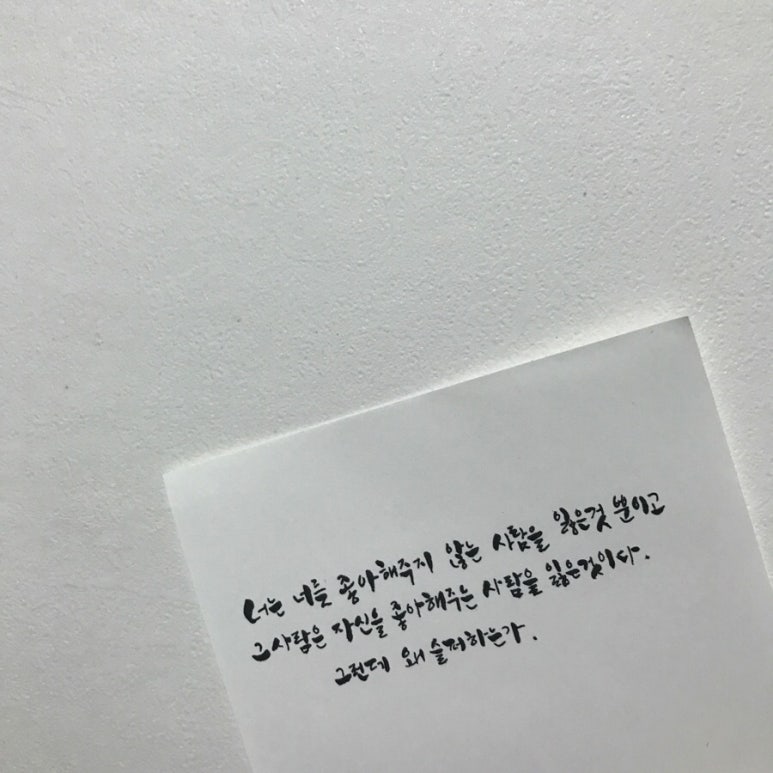 너는 너를 좋아해주지 않는 사람을 잃은것 뿐이고
그사람은 자신을 좋아해주는 사람을 잃은것이다.
그런데 왜 슬퍼하는가.